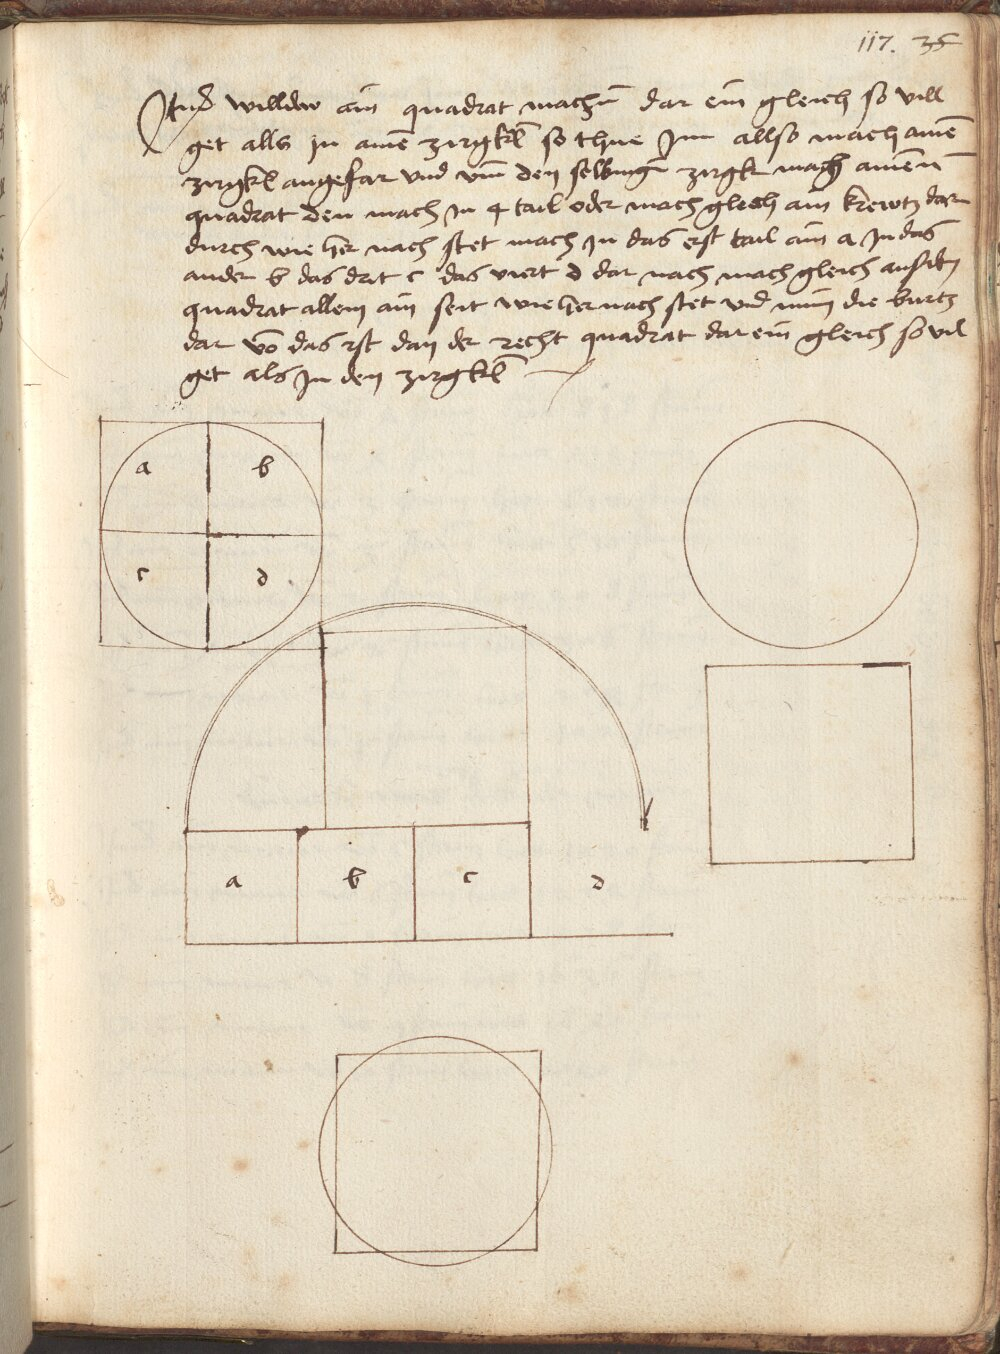 117. 35
Itm̃ willdw ain quadrat machñ dar ein gleich so vill
get alls jn ainē zirgkl so thue Jm allso mach ainē
zirgkl angefar vnd vm̄ den selbingñ zirgkl mach ainenn
quadrat den mach jn 4 tail oder mach gleich ain krewtz dar
durch wie her nach stet mach jn das erst tail ain a jn das
ander b das drit c das viert d dar nach mach gleich
quadrat allein ain seit wie hernach stet vnd nim die kurtz
dar vō das ist dan der recht quadrat dar ein gleich so vil
get als jn den zirgkl
a b
c d
a b c d